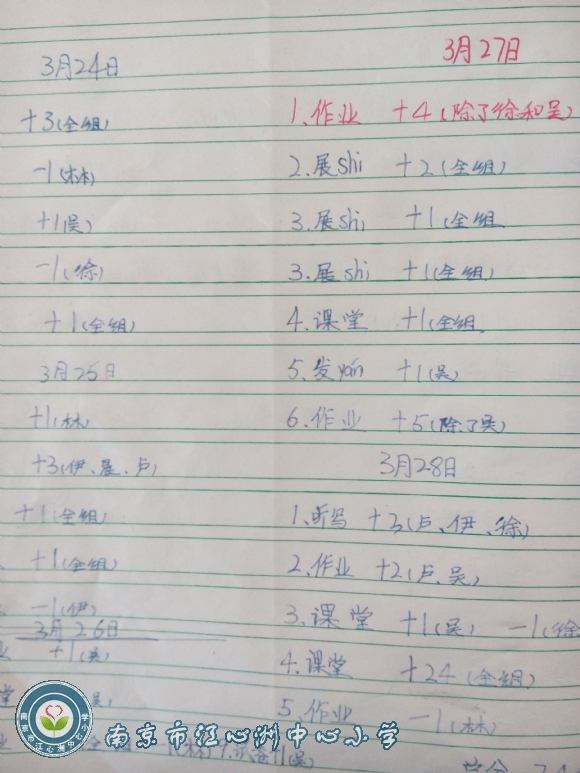 3月24日
+3(全组)
-1(林)
+1(吴)
-1(徐)
+1(全组)
3月25日
+1(林)
+3(伊、晨、卢)
+1(全组)
+1(全组)
-1(伊)
3月26日
+1(吴)
吴)
3月27日
1.作业 +4(除了徐和吴)
2.展shi +2(全组)
3.展shi +1(全组
3.展shi +1(全组)
4.课堂 +1(全组
5.发yan +1(吴)
6.作业 +5(除了吴)
3月28日
1.听写 +3(卢、伊、徐)
2.作业 +2(卢、吴)
3.课堂 +1(吴) -1(徐
4.课堂 +24(全组)
5.作业 -1(林)
南京市江心洲中心小学
南京市江心洲中心小学